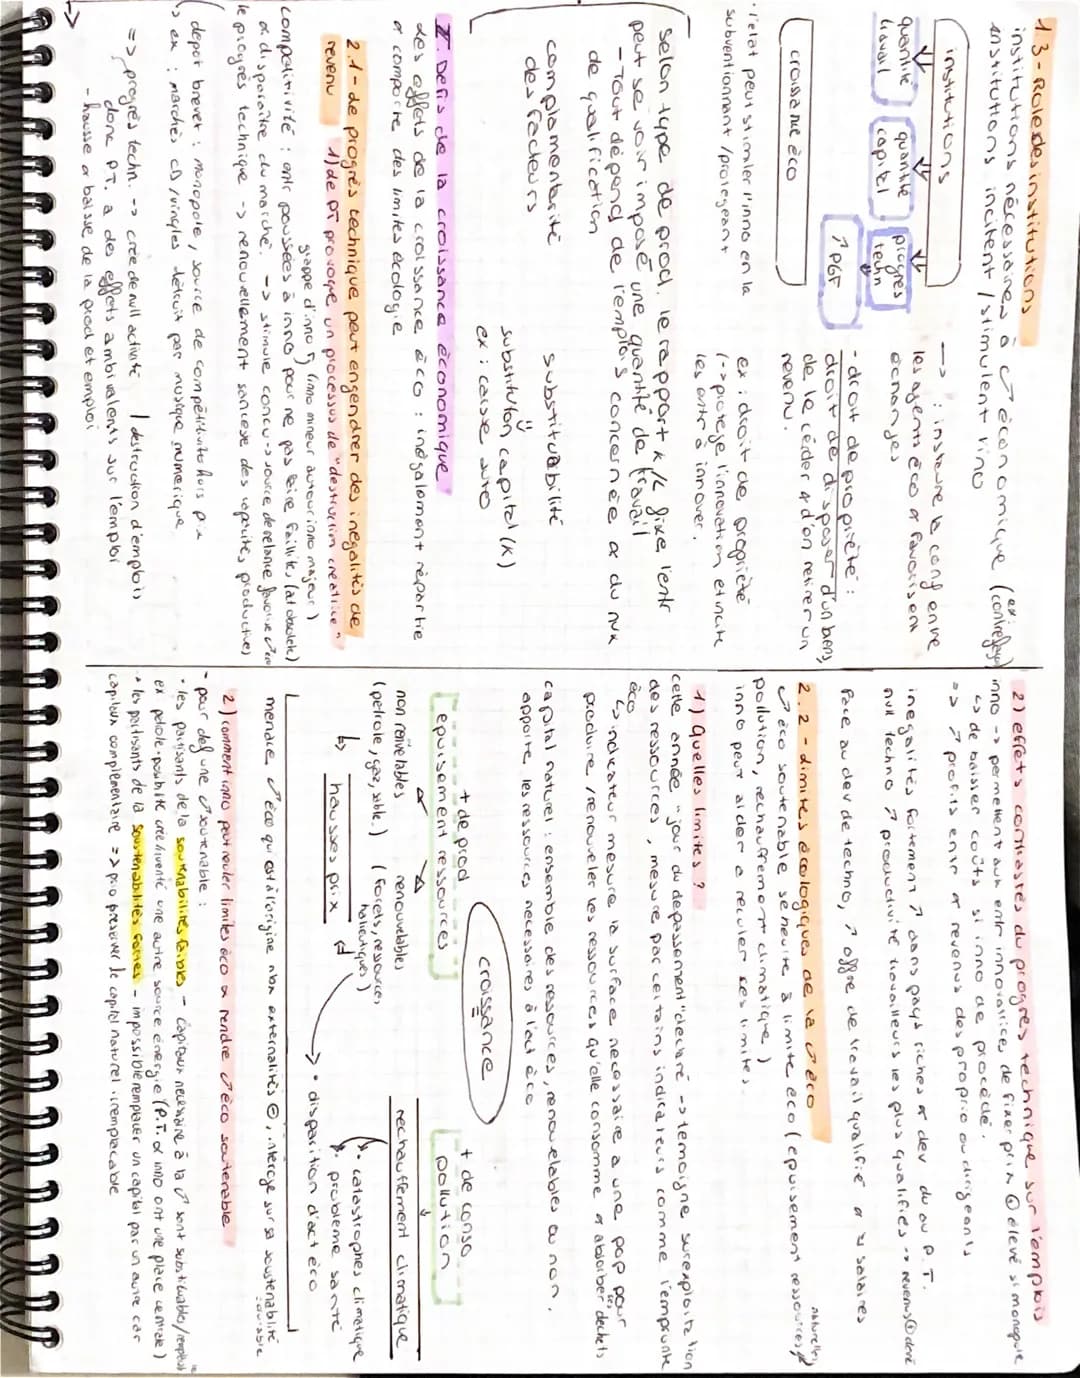 1.3 - Role des institutions
institutions nécessaires à ↗ économique (ex: contrefaçon)
institutions incitent / stimulent l'ino
institutions
quantité travail
quantité capital
progrès techn
↗ PGF
croissance éco
--> : instaure la conf entre
les agents éco & favorisent
échanges
- droit de propriété :
droit de disposer d'un bens,
de le céder & d'en retirer un
revenu.
• l'état peut stimuler l'inno en la
subventionnant / protégeant
ex : droit de propriété
(-> protège l'innovation et incite
les entr à innover.
selon type de prod. le rapport K/L fixe, l'entr
peut se voir imposé une quantité de travail
- Tout dépend de l'emplois concernée & du nux
de qualification
complémentarité
des facteurs
substituabilité
substitution capital (K)
ex : caisse auto
II. Defis de la croissance économique
des effets de la croissance éco : inégalement répartie
& comporte des limites écologie
2.1 - de progrès technique peut engendrer des inégalités de
revenu
1) de PT provoque un processus de "destruction créatrice"
grappe d'inno (inno mineur autour inno majeur)
compétitivité : entr poussées à inno pour ne pas faire faillite, (at obsolète)
& disparaître du marché. -> stimule concu -> source de relance favorise ↗ éco
le progrès technique -> renouvellement sans cesse des capacités productives
depot brevet : monopole, source de compétitivité hors prix
↳ ex : marchés CD/vinyles détruit par musique numérique
=> progrès techn. -> crée de nvll activité / destruction d'emplois
donc P.T. a des effets ambivalents sur l'emploi
- hausse & baisse de la prod et emploi
2) effets contrastés du progrès technique sur l'emplois
inno -> permettent aux entr innovatrice, de fixer prix ⊕ élevé si monopole
↳ de baisser coûts si inno de procédé.
=> ↗ profits entr & revenus des proprio ou dirigeants
inégalités fortement ↗ dans pays riches & dev du au P.T.
nvll techno ↗ productivité travailleurs les plus qualifiés -> revenus ⊕ élevé
Face au dev de techno, ↗ offre de travail qualifié & ↘ salaires
2.2 - dimites écologiques de la ↗ éco
↗ éco soutenable se heurte à limite éco (épuisement ressources naturelles,
pollution, réchauffement climatique)
inno peut aider à reculer ces limites.
1) Quelles limites ?
cette année "jour du dépassement" déclaré -> témoigne surexploitation
des ressources, mesuré par certains indicateurs comme l'emprunte
éco
↳ indicateur mesure la surface nécessaire a une pop pour
produire / renouveler les ressources qu'elle consomme & absorber les déchets
capital naturel : ensemble des ressources, renouvelables ou non.
apporte les ressources nécessaires à l'act éco
croissance
+ de prod
+ de conso
épuisement ressources
pollution
non renouvelables
(pétrole, gaz, sable.)
renouvelables
(forêts, ressources
halieutiques)
réchauffement climatique
hausses prix
• catastrophes climatique
• problème santé
• disparition d'act éco
menace ↗ éco qui est à l'origine nbx externalités ⊖, interoge sur sa soutenabilité
2) comment inno peut reculer limites éco & rendre ↗ éco soutenable
- pour def une ↗ soutenable :
• les partisans de la soutenabilités faibles - capitaux nécessaire à la ↗ sont substituables/
ex pétrole - posibilité crée/inventé une autre source énergie (P.T. & inno ont une place centrale)
• les partisants de la soutenabilités fortes - impossible remplacer un capital par un autre car
capitaux complémentaire => pro préserver le capital naturel : irremplacable